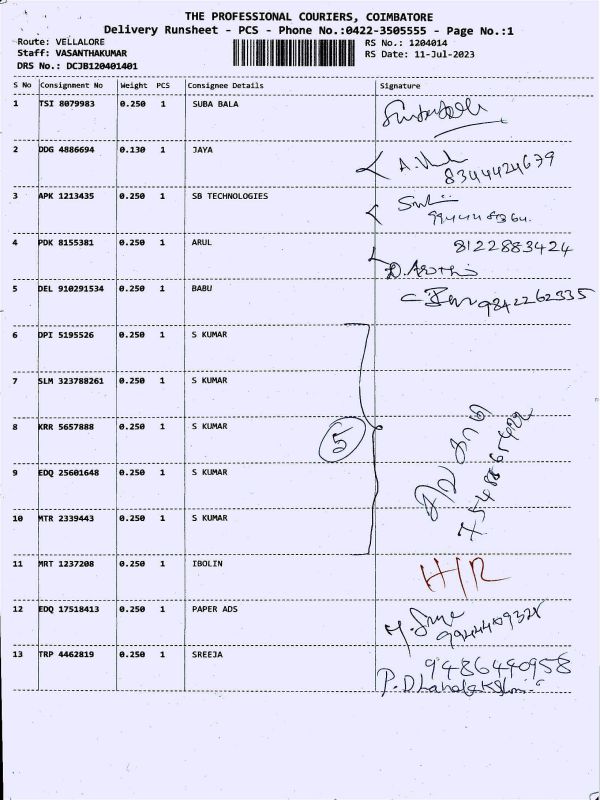 THE PROFESSIONAL COURIERS, COIMBATORE
Delivery Runsheet - PCS - Phone No.:0422-3505555 - Page No.:1
Route: VELLALORE RS No.: 1204014
Staff: VASANTHAKUMAR RS Date: 11-Jul-2023
DRS No.: DCJB120401401
S No Consignment No Weight PCS Consignee Details Signature
1 TSI 8079983 0.250 1 SUBA BALA
2 DDG 4886694 0.130 1 JAYA
8344424679
3 APK 1213435 0.250 1 SB TECHNOLOGIES
4 PDK 8155381 0.250 1 ARUL 8122883424
5 DEL 910291534 0.250 1 BABU 9842262335
6 DPI 5195526 0.250 1 S KUMAR
7 SLM 323788261 0.250 1 S KUMAR
8 KRR 5657888 0.250 1 S KUMAR
5
9 EDQ 25601648 0.250 1 S KUMAR
10 MTR 2339443 0.250 1 S KUMAR
11 MRT 1237208 0.250 1 IBOLIN H/R
12 EDQ 17518413 0.250 1 PAPER ADS
13 TRP 4462819 0.250 1 SREEJA 9486490958